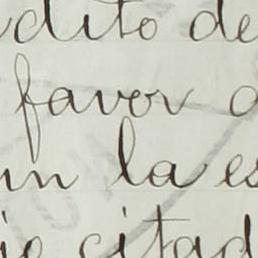 dito de
favor
un la es
citad